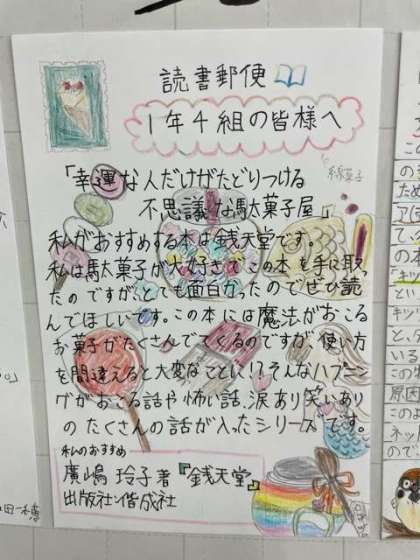 読書郵便
1年4組の皆様へ
「幸運な人だけがたどりつける
不思議な駄菓子屋」
私がおすすめする本は銭天堂です。
私は駄菓子が大好きでこの本を手に取っ
たのですが、とても面白かったのでぜひ読
んでほしいです。この本には魔法がおこる
お菓子がたくさんでてくるのですが、使い方
を間違えると大変なことに!?そんなハプニン
グがおこる話や怖い話、涙あり笑いあり
のたくさんの話が入ったシリーズです。
私のおすすめ
廣嶋玲子著『銭天堂』
出版社:偕成社